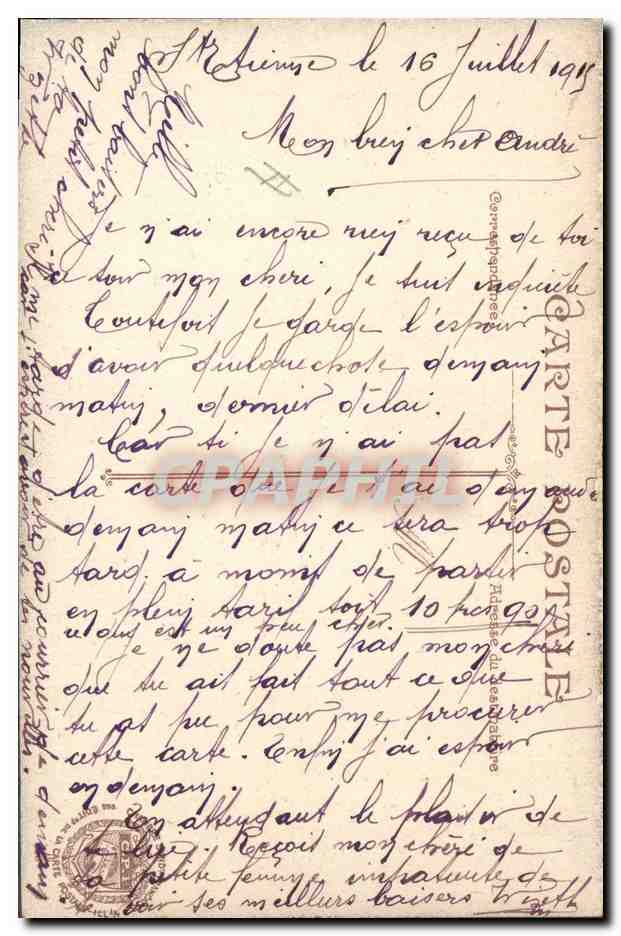 St Etienne le 16 Juillet 1915
Mon bien cher André
Je n'ai encore rien reçu de toi
ce soir mon cheri, Je suis inquiète
Toutefois Je garde l'espoir
d'avoir quelquechose demain
matin, dernier délai.
Car si Je n'ai pas
la carte que Je t'ai demandé
demain matin ce sera trop
tard. à moins de partir
en plein tarif soit 10 frcs 90
ce qui est un peu cher.
Je ne doute pas mon chéri
que tu ais fait tout ce que
tu as pu pour me procurer
cette carte. Enfin j'ai espoir
en demain.
En attendant le plaisir de
te lire. Reçois mon chéri de
ta petite femme impatiente de
voir ses meilleurs baisers
Mille
bons baisers
mon petit cheri
de ta
CARTE POSTALE
Correspondance
Adresse du Destinataire
CPAPHIL